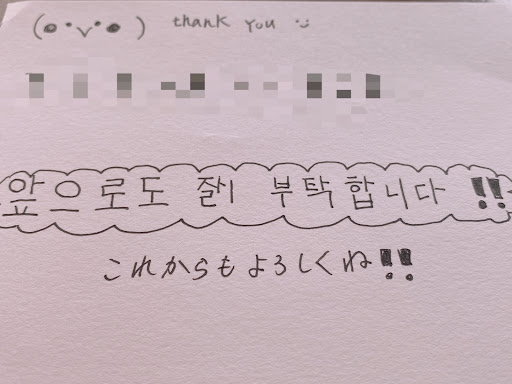 (๑•ᴗ•๑) thank you :)
앞으로도 잘 부탁합니다 !!
これからもよろしくね!!